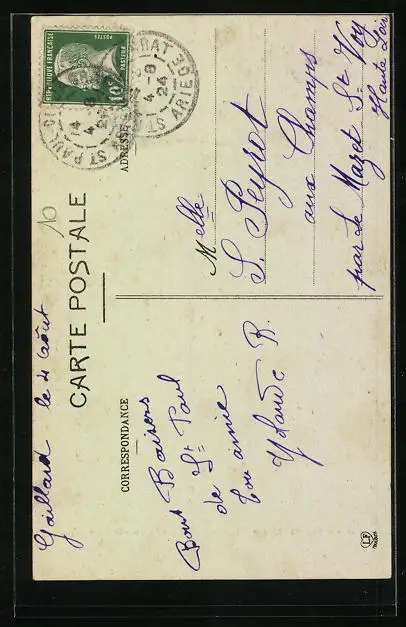 RÉPUBLIQUE FRANÇAISE
POSTES
PASTEUR
10c
14
4-8
24
ST PAUL
ARIEGE
4-8
24
10
CARTE POSTALE
CORRESPONDANCE
ADRESSE
Gaillard le 4 août
Bons Baisers
de St Paul
Ton amie
Yolande R.
Melle
S. Peyrot
aux Champs
par Le Mazet St Voy
Haute Loire
LF